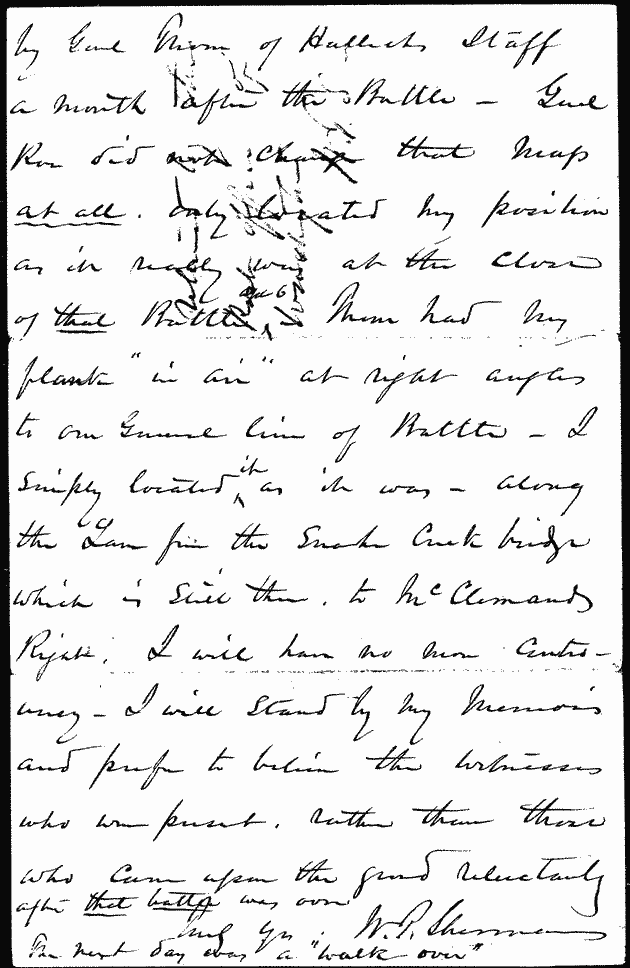 by Genl Thom of Hallecks Staff
a month after the Battle - Genl
Roe did not change that map
at all. only located my position
as it really was at the close
of that Battle. Thom had my
flank "in air" at right angles
to our General line of Battle - I
simply located it as it was - along
the Lane from the Snake Creek bridge
which is still there. to McClernands
Right. I will have no more contro-
versy - I will stand by my Memoirs
and prefer to believe the witnesses
who were present. rather than those
who came upon the ground reluctantly
after that battle was over
Yrs. W. T. Sherman
The next day was a "walk over"